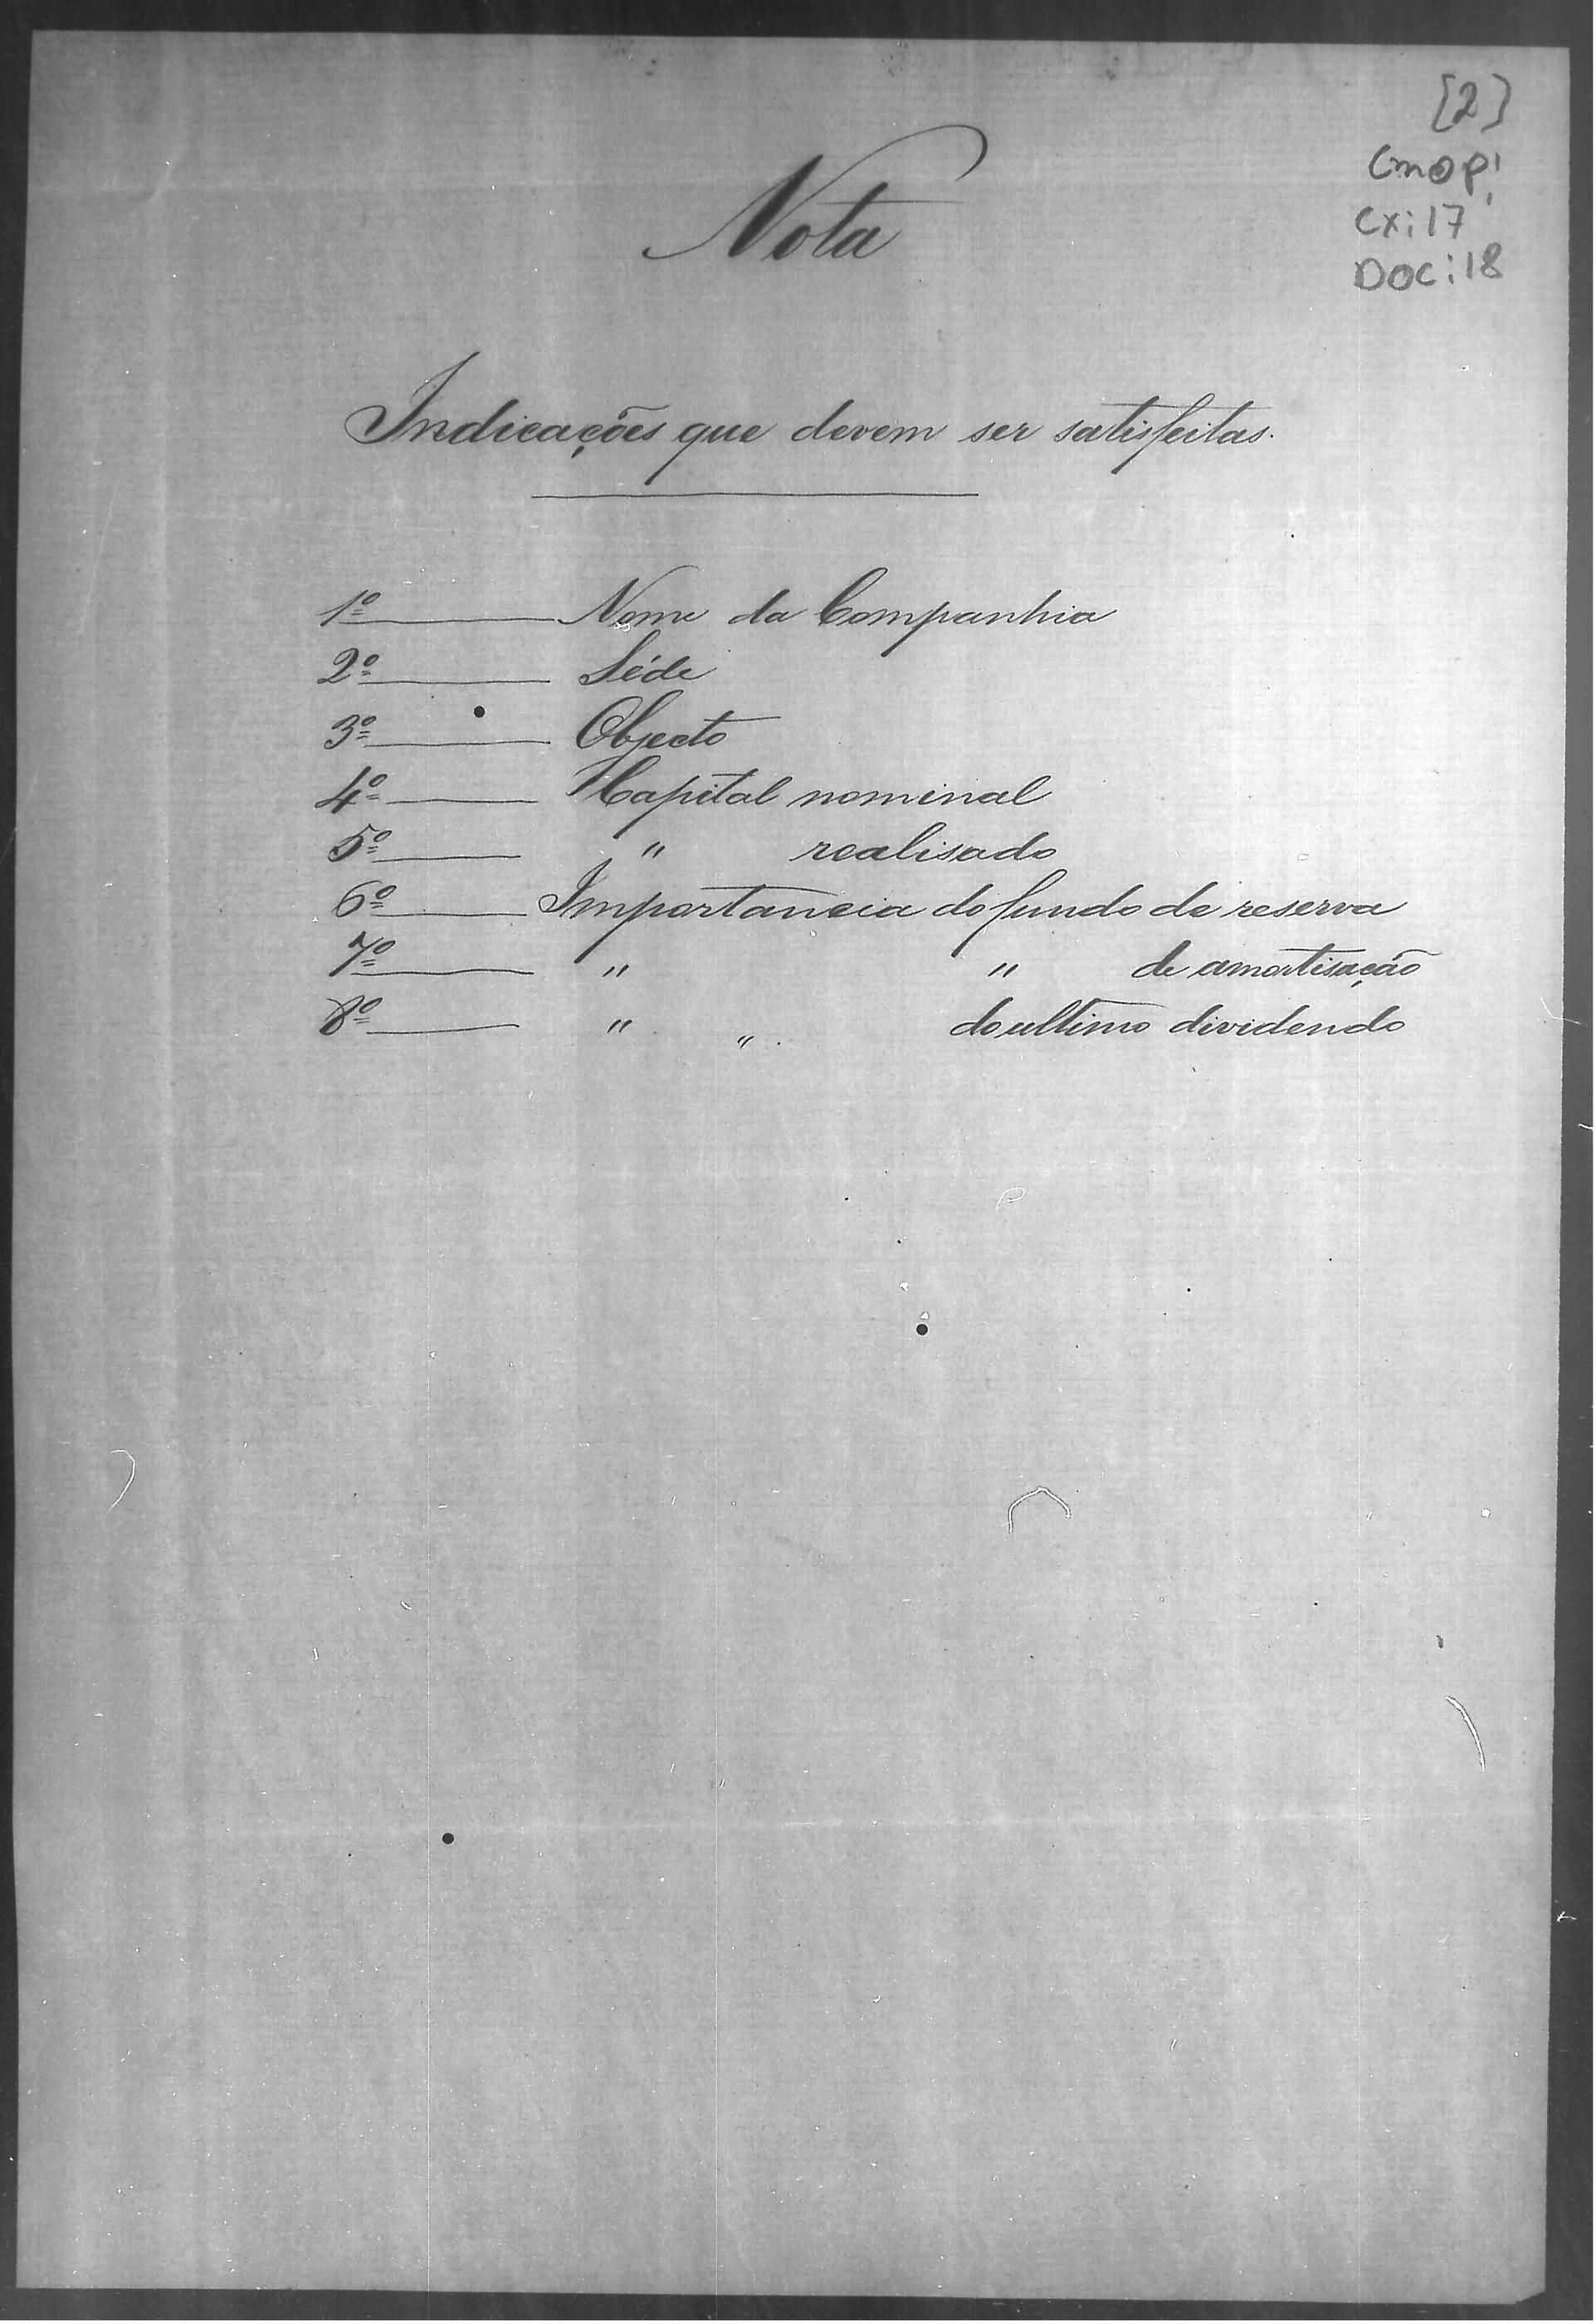 [2]
Cmop!
Cx: 17
Doc: 18
Nota
Indicações que devem ser satisfeitas.
1º Nome da Companhia
2º Séde
3º Objecto
4º Capital nominal
5º " realisado
6º Importancia do fundo de reserva
7º " " de amortisação
8º " " do ultimo dividendo